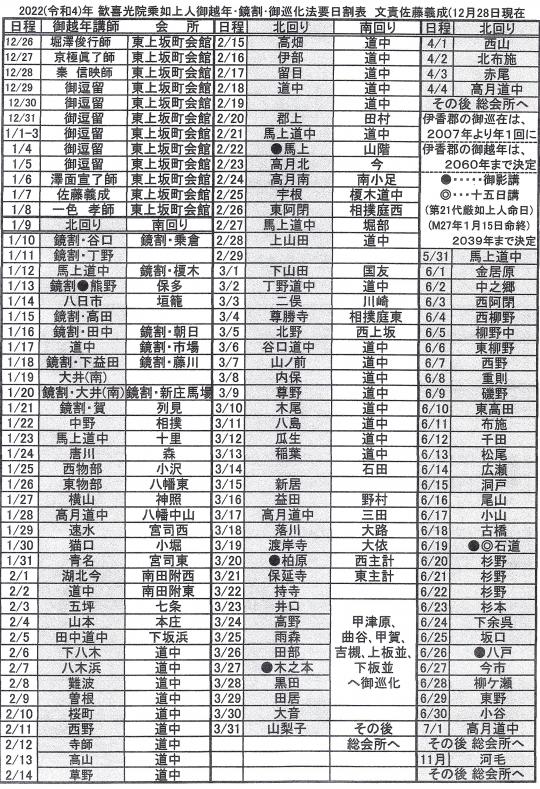 2022(令和4)年 歓喜光院乗如上人御越年・鏡割・御巡化法要日割表 文責佐藤義成(12月28日現在
日程 御越年講師 会 所
12/26 堀澤俊行師 東上坂町会館
12/27 京極眞了師 東上坂町会館
12/28 秦 信映師 東上坂町会館
12/29 御逗留 東上坂町会館
12/30 御逗留 東上坂町会館
12/31 御逗留 東上坂町会館
1/1-3 御逗留 東上坂町会館
1/4 御逗留 東上坂町会館
1/5 御逗留 東上坂町会館
1/6 澤面宣了師 東上坂町会館
1/7 佐藤義成 東上坂町会館
1/8 一色 孝師 東上坂町会館
1/9 北回り 南回り
1/10 鏡割・谷口 鏡割・乗倉
1/11 鏡割・丁野
1/12 馬上道中 鏡割・榎木
1/13 鏡割●熊野 保多
1/14 八日市 垣籠
1/15 鏡割・高田
1/16 鏡割・田中 鏡割・朝日
1/17 道中 鏡割・市場
1/18 鏡割・下益田 鏡割・藤川
1/19 大井(南)
1/20 鏡割・大井(南) 鏡割・新庄馬場
1/21 鏡割・賀 列見
1/22 中野 相撲
1/23 馬上道中 十里
1/24 唐川 森
1/25 西物部 小沢
1/26 東物部 八幡東
1/27 横山 神照
1/28 高月道中 八幡中山
1/29 速水 宮司西
1/30 猫口 小堀
1/31 青名 宮司東
2/1 湖北今 南田附西
2/2 道中 南田附東
2/3 五坪 七条
2/4 山本 本庄
2/5 田中道中 下坂浜
2/6 下八木 道中
2/7 八木浜 道中
2/8 難波 道中
2/9 曽根 道中
2/10 桜町 道中
2/11 西野 道中
2/12 寺師 道中
2/13 高山 道中
2/14 草野 道中
日程 北回り 南回り
2/15 高畑 道中
2/16 伊部 道中
2/17 留目 道中
2/18 道中 道中
2/19 道中
2/20 郡上 田村
2/21 馬上道中 道中
2/22 ●馬上 山階
2/23 高月北 今
2/24 高月南 南小足
2/25 宇根 榎木道中
2/26 東阿閉 相撲庭西
2/27 馬上道中 堀部
2/28 上山田 道中
2/29
3/1 下山田 国友
3/2 丁野道中 道中
3/3 二俣 川崎
3/4 尊勝寺 相撲庭東
3/5 北野 西上坂
3/6 谷口道中 道中
3/7 山ノ前 道中
3/8 内保 道中
3/9 尊野 道中
3/10 木尾 道中
3/11 八島 道中
3/12 瓜生 道中
3/13 稲葉 道中
3/14 石田
3/15 新居
3/16 益田 野村
3/17 高月道中 三田
3/18 落川 大路
3/19 渡岸寺 大依
3/20 ●柏原 西主計
3/21 保延寺 東主計
3/22 持寺
3/23 井口
3/24 高野
3/25 雨森
3/26 田部
3/27 ●木之本
3/28 黒田
3/29 田居
3/30 大音
3/31 山梨子 その後
総会所へ
甲津原、
曲谷、甲賀、
吉槻、上板並、
下板並
へ御巡化
日程 北回り
4/1 西山
4/2 北布施
4/3 赤尾
4/4 高月道中
その後 総会所へ
伊香郡の御巡在は、
2007年より年1回に
伊香郡の御越年は、
2060年まで決定
●‥‥‥御影講
◎‥‥十五日講
(第21代厳如上人命日)
(M27年1月15日命終)
2039年まで決定
5/31 馬上道中
6/1 金居原
6/2 中之郷
6/3 西阿閉
6/4 西柳野
6/5 柳野中
6/6 東柳野
6/7 西野
6/8 重則
6/9 磯野
6/10 東高田
6/11 布施
6/12 千田
6/13 松尾
6/14 広瀬
6/15 洞戸
6/16 尾山
6/17 小山
6/18 古橋
6/19 ●◎石道
6/20 杉野
6/21 杉野
6/22 杉野
6/23 杉本
6/24 下余呉
6/25 坂口
6/26 ●八戸
6/27 今市
6/28 柳ケ瀬
6/29 東野
6/30 小谷
7/1 高月道中
その後 総会所へ
11月 河毛
その後 総会所へ